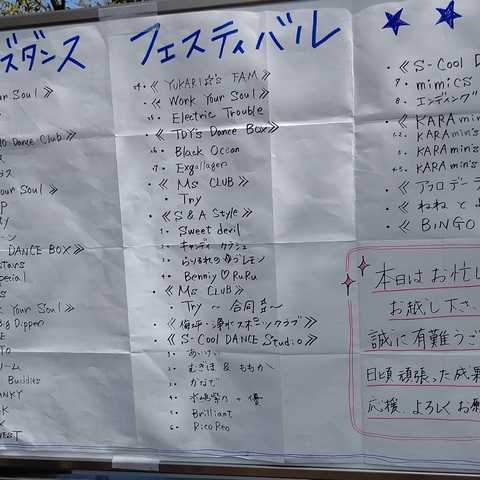 ズダンス フェスティバル ★ ★
our Soul》
Dance Club》
our Soul》
DANCE BOX》
stars
pecial
k Your Soul》
Big Dipper
TO
Buddies
ANKY
《YUKARI☆'s FAM》
《Work Your Soul》
Electric Trouble
《TDY's Dance Box》
Black Ocean
Exgallagen
《Ms CLUB》
Try
《S&A Style》
Sweet devil
キャンディ クラッシュ
Benniy♡RuRu
《Ms CLUB》
Try 〜合同
スポーツクラブ》
《S-Cool DANCE Studio》
1. あいけい
2. むぎほ & ももか
3. かなで
5. Brilliant
6. RicoReo
《S-Cool D
7. mimics
8. エンディング
《KARA min
KARA min's
KARA min's
KARA min's
《アフロデー
《ねねと
《BiNGO
本日はお忙し
お越し下さ
誠に有難うご
日頃頑張った成果
応援 よろしくお願